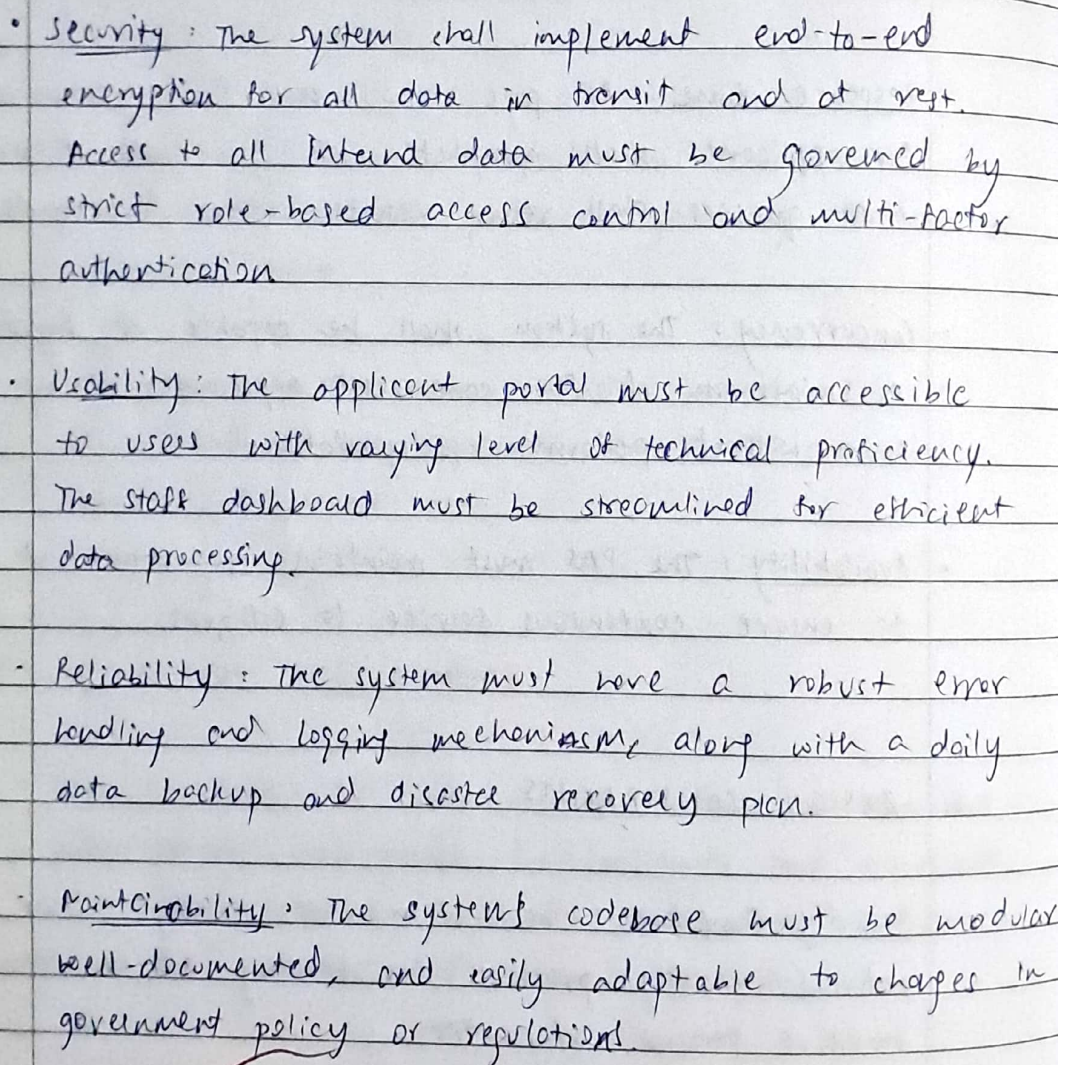 • Security : The system shall implement end-to-end
encryption for all data in transit and at rest.
Access to all Internal data must be governed by
strict role-based access control and multi-factor
authentication
• Usability : The applicant portal must be accessible
to users with varying level of technical proficiency.
The staff dashboard must be streamlined for efficient
data processing.
• Reliability : The system must have a robust error
handling and logging mechanism, along with a daily
data backup and disaster recovery plan.
• Maintainability : The system's codebase must be modular
well-documented, and easily adaptable to changes in
government policy or regulations